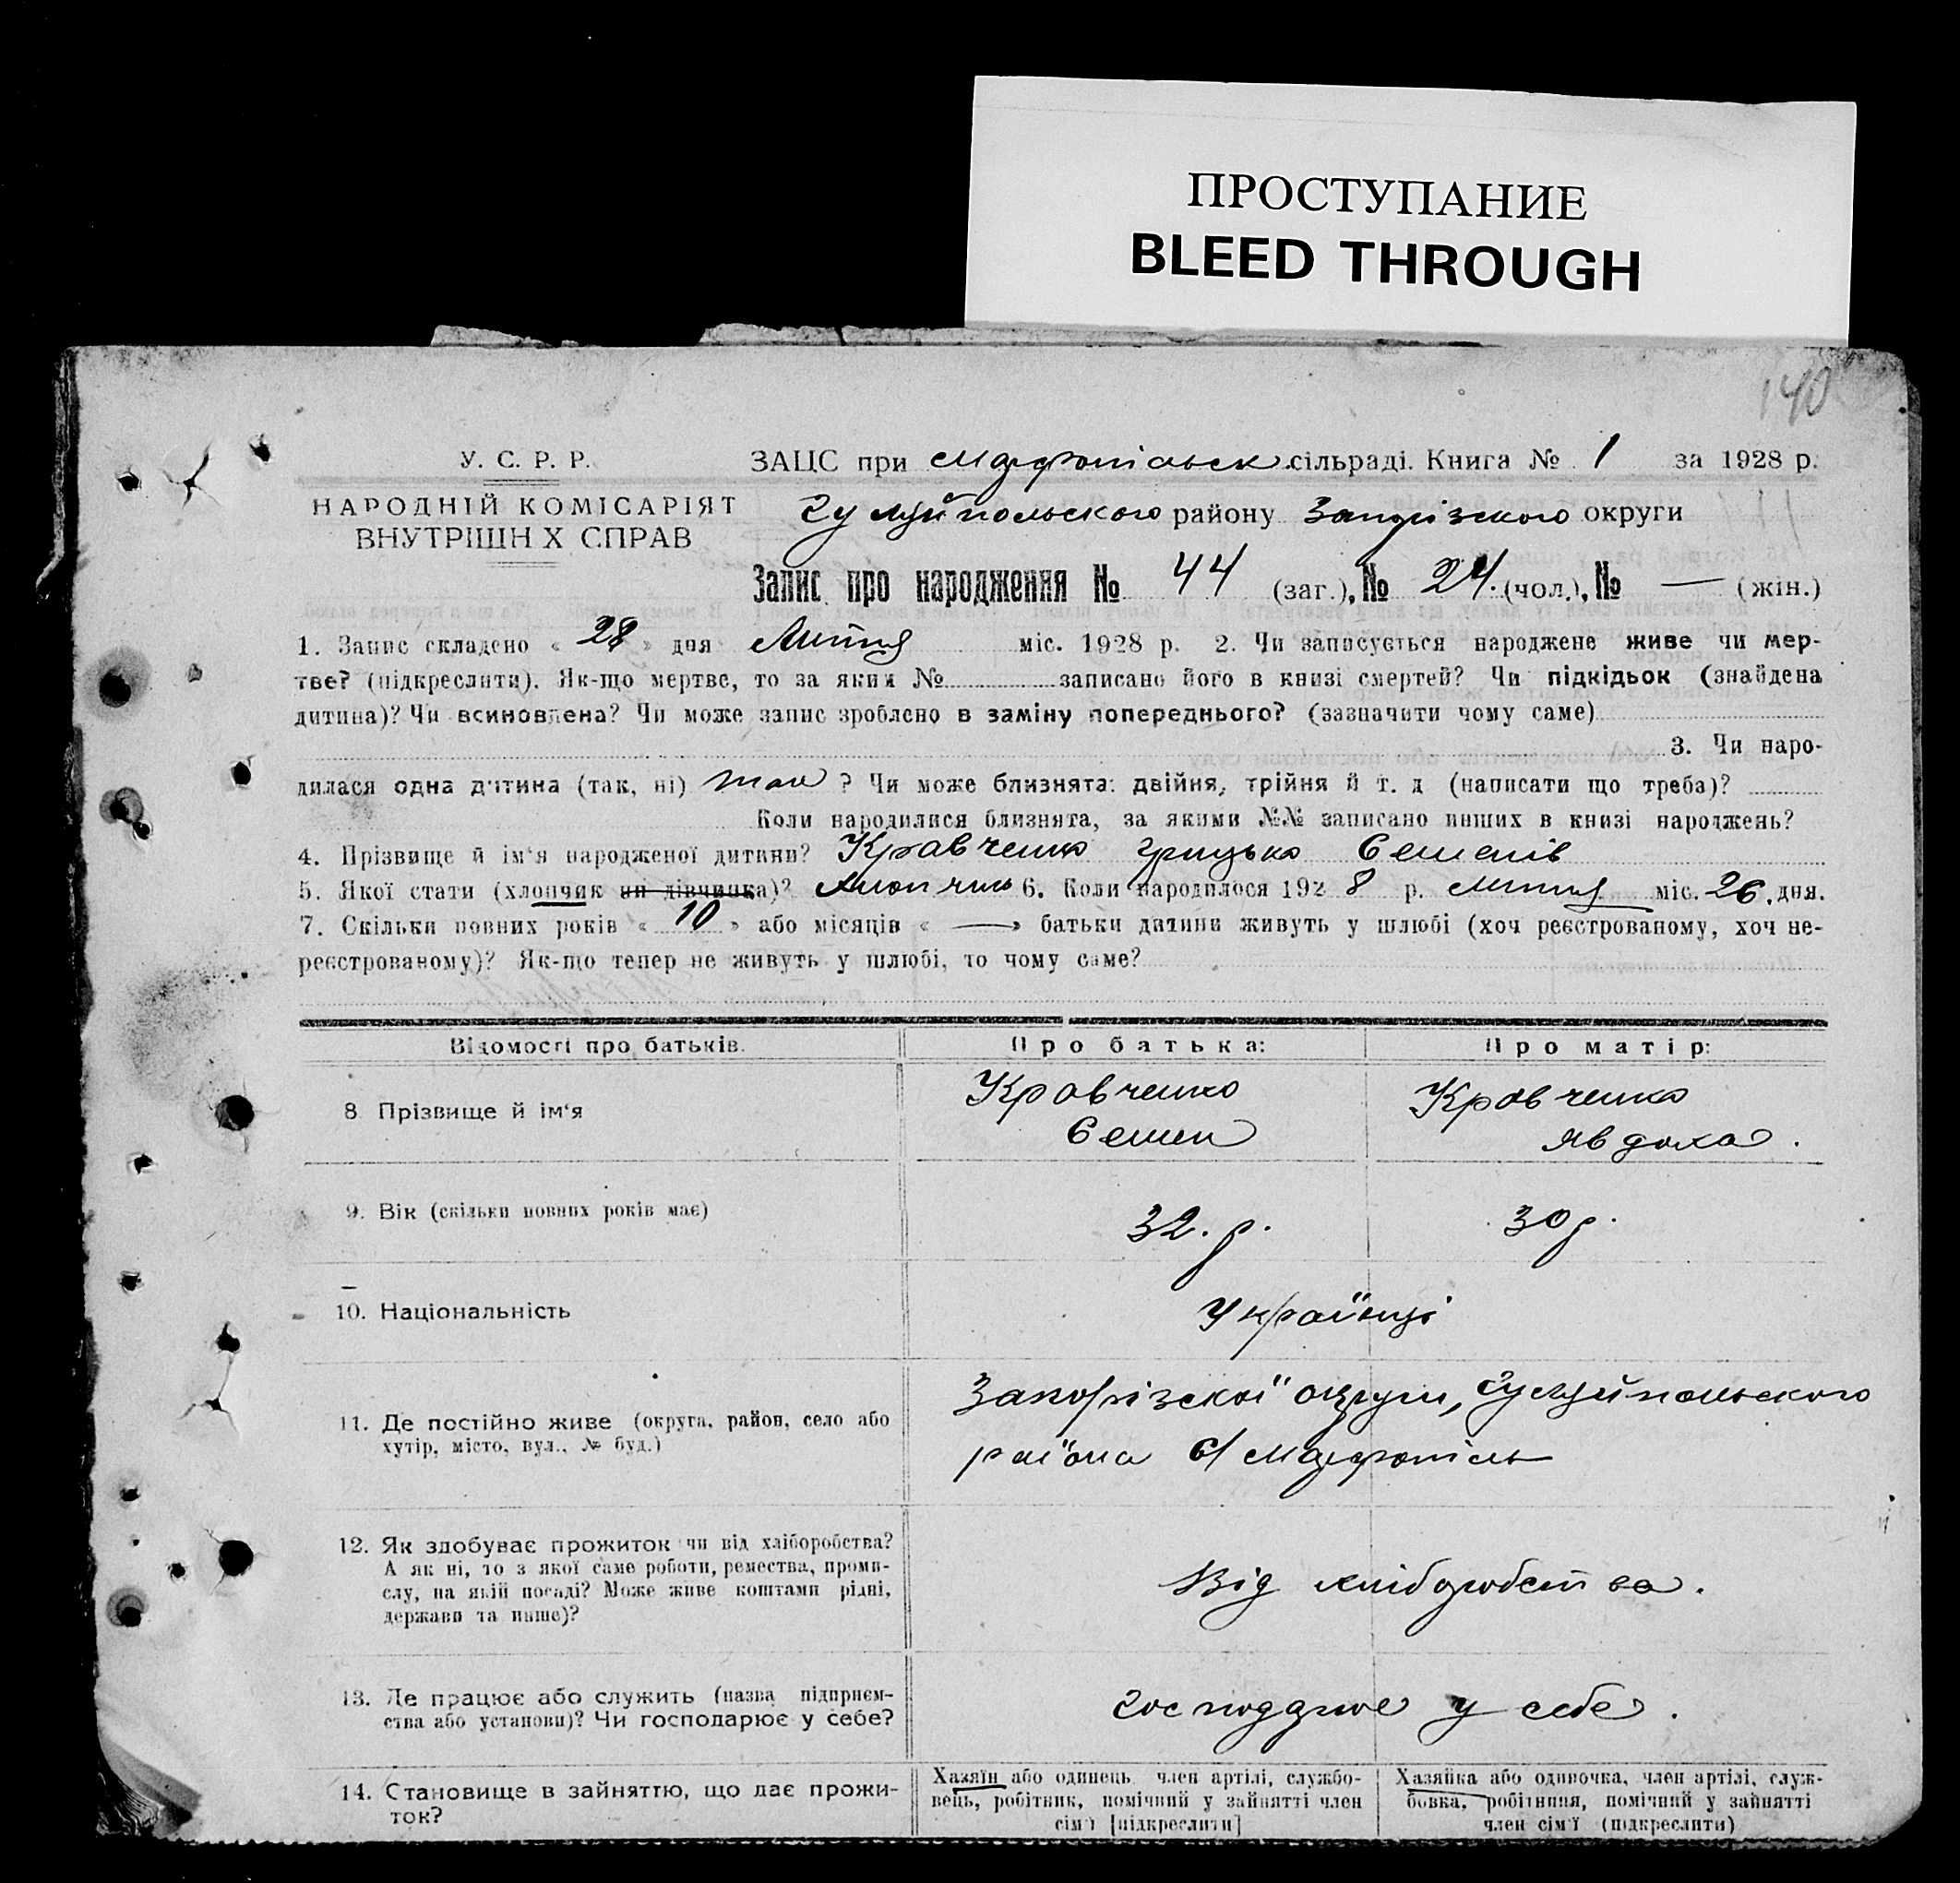 ПРОСТУПАНИЕ
BLEED THROUGH
140
У. С. Р. Р.
НАРОДНІЙ КОМІСАРІЯТ
ВНУТРІШН Х СПРАВ
ЗАЦС при Марфопільськ. сільраді. Книга № 1 за 1928 р.
Гуляйпольского району Запорізкого округи
Запис про народження № 44 (заг.), № 24. (чол.), № — (жін.)
1. Запис складено « 28 » дня Липня міс. 1928 р. 2. Чи записується народжене живе чи мер-
тве? (підкреслити). Як-що мертве, то за яким № записано його в книзі смертей? Чи підкідьок (знайдена
дитина)? Чи всиновлена? Чи може запис зроблено в заміну попереднього? (зазначити чому саме)
3. Чи наро-
дилася одна дитина (так, ні) так ? Чи може близнята: двійня, трійня й т. д (написати що треба)?
Коли народилися близнята, за якими №№ записано инших в книзі народжень?
4. Прізвище й ім‘я народженої дитини? Кравченко Грицько Семенів
5. Якої стати (хлопчик чи дівчинка)? Хлопчик 6. Коли народилося 192 8 р. Липня міс. 26. дня.
7. Скільки повних років « 10 » або місяців « — » батьки дитини живуть у шлюбі (хоч реєстрованому, хоч не-
реєстрованому)? Як-що тепер не живуть у шлюбі, то чому саме?
Відомості про батьків. Про батька: Про матір:
8. Прізвище й ім‘я Кравченко Семен Кравченко Явдоха.
9. Вік (скільки повних років має) 32. р. 30 р.
10. Національність Українці
11. Де постійно живе (округа, район, село або
хутір, місто, вул., № буд.)
Запорізскої округи, Гуляйпольского
района С/ Марфопіль
12. Як здобуває прожиток чи від хліборобства?
А як ні, то з якої саме роботи, ремества, проми-
слу, на якій посаді? Може живе коштами рідні,
держави та инше)?
Від хліборобства.
13. Де працює або служить (назва підприєм-
ства або установи)? Чи господарює у себе?
господарює у себе.
14. Становище в зайняттю, що дає прожи-
ток?
Хазяїн або одинець, член артілі, службо-
вець, робітник, помічний у зайнятті член
сім‘ї [підкреслити]
Хазяйка або одиночка, член артілі, служ-
бовка, робітниця, помічний у зайнятті
член сім‘ї (підкреслити)